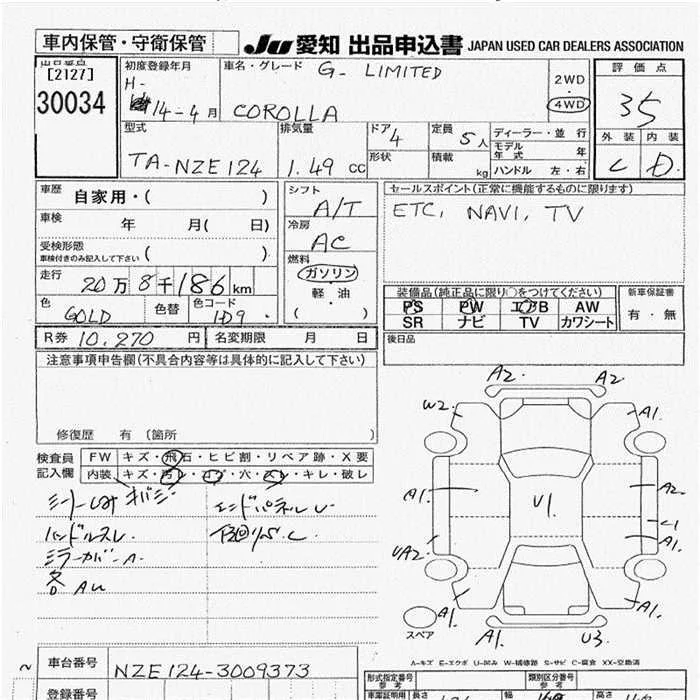 車内保管・守衛保管
JU 愛知 出品申込書 JAPAN USED CAR DEALERS ASSOCIATION
出品番号
[2127]
30034
初度登録年月
H-
14-4月
車名・グレード G-LIMITED
COROLLA
2WD
4WD
評価点
35
型式
TA-NZE124
排気量
1.49 cc
ドア 4
形状
定員 5人
積載 kg
ディーラー・並行
モデル年式 年
ハンドル 左・右
外装 内装
C D
車歴 自家用・( )
車検 年 月( 日)
受検形態
車検付きのみ記入して下さい ( )
走行 20万8千186km
色 GOLD 色替 色コード 1D9
シフト
A/T
冷房
AC
燃料
ガソリン
軽・油
( )
セールスポイント(正常に機能するものに限ります)
ETC, NAVI, TV
装備品(純正品に限り○をつけてください)
PS PW エアB AW
SR ナビ TV カワシート
新車保証書
有・無
R券 10,270円 名変期限 月 日
後日品
注意事項申告欄(不具合内容等は具体的に記入して下さい)
修復歴 有 (箇所 )
検査員
記入欄
FW キズ・飛石・ヒビ割・リペア跡・X要
内装 キズ・汚レ・コゲ・穴・スレ・キレ・破レ
ハンドルスレ
ミラーカバーA
各AU
エンドパネルU
A2 A2
W2 A1
A1 A2
U1
C1
UA2 A1
A1 A1
スペア
A1 U3
A-キズ E-エクボ U-凹み W-補修跡 S-サビ C-腐食 XX-交換済
車台番号 NZE124-3009373
登録番号
型式指定番号
参考
類別区分番号
参考
車庫証明用
長さ
幅
高さ